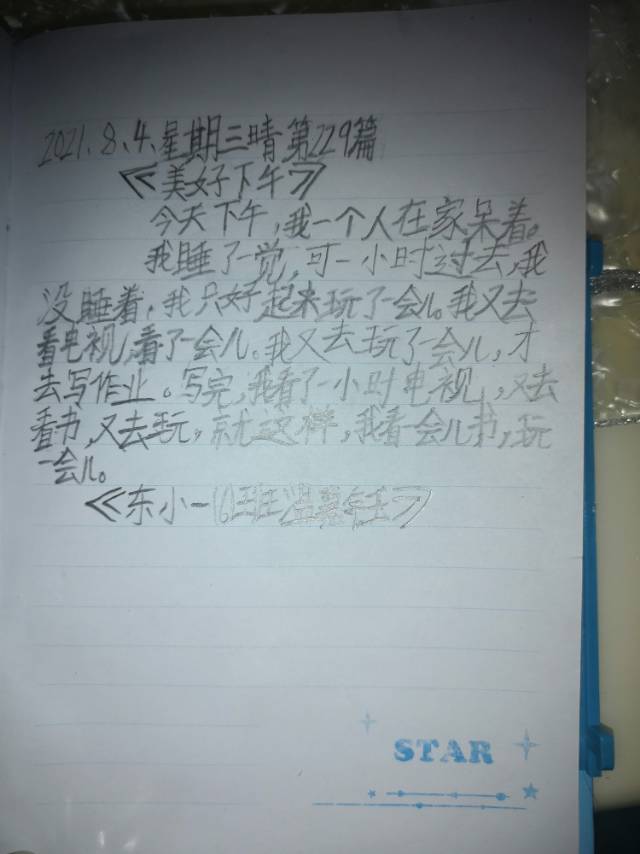 2021.8.4.星期三晴第229篇
《美好下午》
今天下午,我一个人在家呆着。
我睡了一觉,可一小时过去,我
没睡着,我只好起来玩了一会儿。我又去
看电视,看了一会儿。我又去玩了一会儿,才
去写作业。写完,我看了一小时电视,又去
看书,又去玩。就这样,我看一会儿书,玩
一会儿。
《东小一(6)班温钰》
STAR